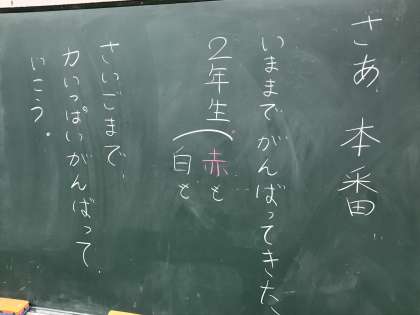 さあ、本番
いままでがんばってきた、
2年生
赤も
白も
さいごまで、
力いっぱいがんばって、
いこう。